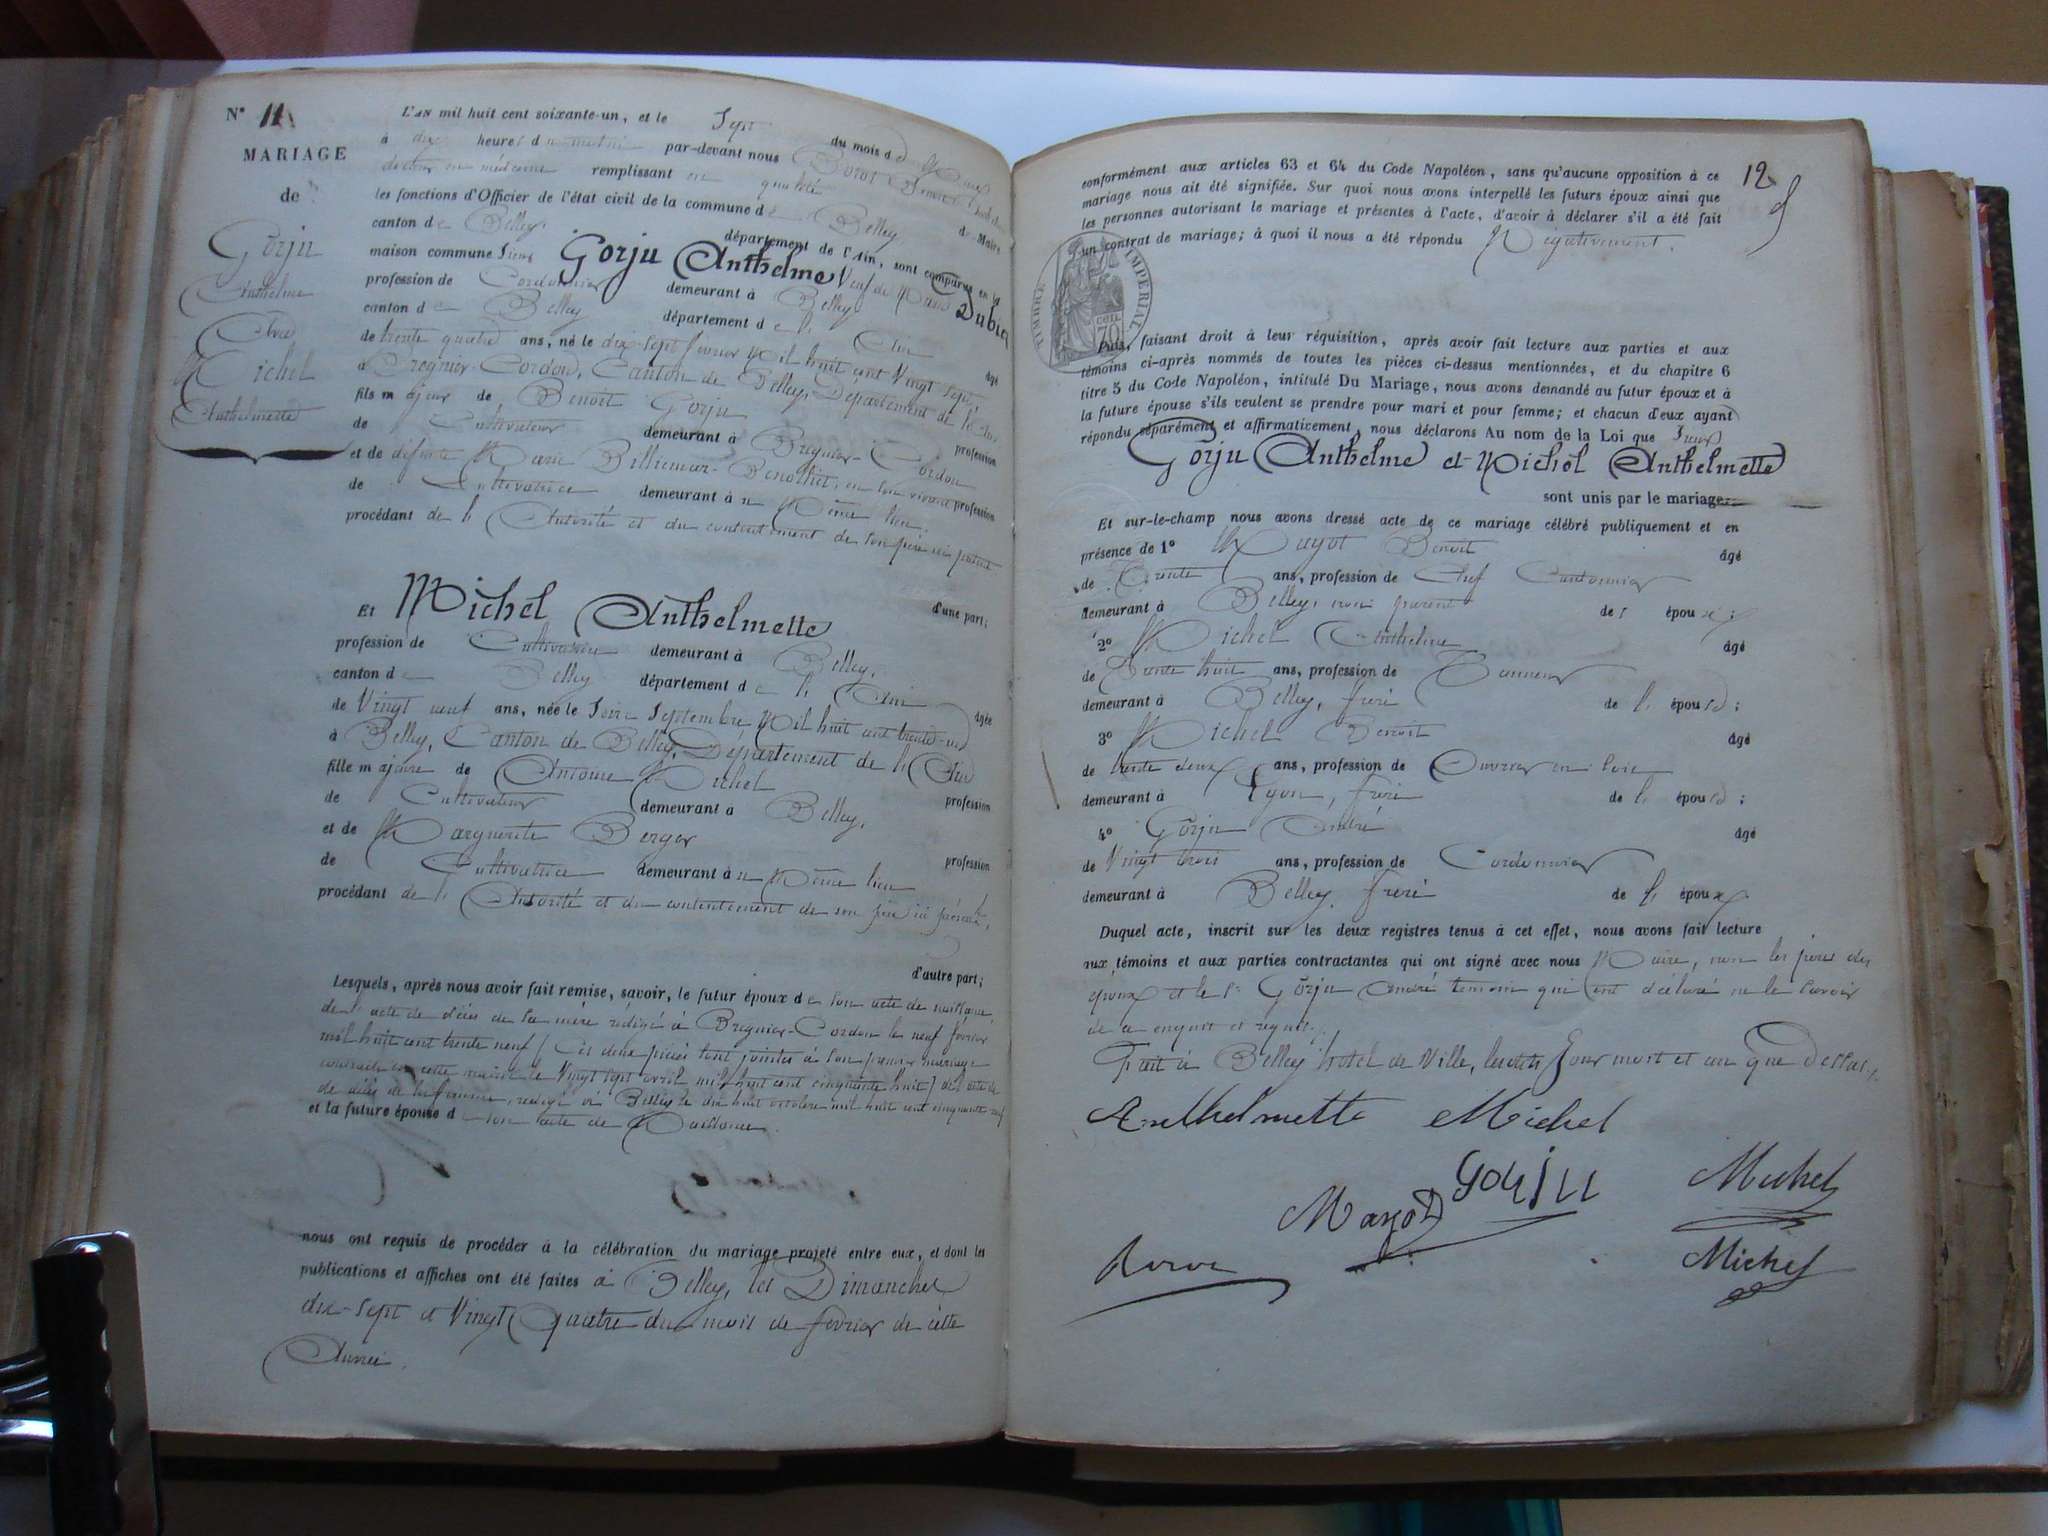 N° 11
MARIAGE
de
Gorju
Anthelme
Avec
Michel
Anthelmette
L'AN mil huit cent soixante-un, et le Sept du mois de Mars
à dix heures du matin par-devant nous
docteur en médecine remplissant en qualité de Maire
les fonctions d'Officier de l'état civil de la commune de Belley
canton de Belley, département de l'Ain, sont comparus en la
maison commune Sieur Gorju Anthelme Veuf de Marie Dubiez
profession de Cordonnier demeurant à Belley
canton de Belley département de l'Ain âgé
de trente quatre ans, né le dix-sept février Mil huit cent Vingt sept
à Bregnier-Cordon, Canton de Belley, Département de l'Ain
fils majeur de Benoit Gorju profession
de Cultivateur demeurant à Bregnier-Cordon
et de défunte Marie Benoîthe, en son vivant profession
de Cultivatrice demeurant au Même lieu,
procédant de l'Autorité et du contentement de son père ici présent
d'une part;
Et Michel Anthelmette
profession de Cultivatrice demeurant à Belley,
canton de Belley département de l'Ain âgée
de Vingt neuf ans, née le Septembre Mil huit cent trente-un
à Belley, Canton de Belley, Département de l'Ain
fille majeure de Antoine Michel profession
de Cultivateur demeurant à Belley,
et de Marguerite Berger profession
de Cultivatrice demeurant au Même lieu
procédant de l'Autorité et du contentement de son père ici présent,
d'autre part;
Lesquels, après nous avoir fait remise, savoir, le futur époux de son acte de naissance,
de l'acte de décès de sa mère rédigé à Bregnier-Cordon le neuf février
mil huit cent trente neuf (Ces deux pièces sont jointes à son premier mariage
contracté en cette mairie le Vingt sept avril mil huit cent cinquante huit) de l'acte de
de décès de sa femme, rédigé à Belley le dix huit octobre mil huit cent cinquante neuf
et la future épouse de son acte de Naissance.
nous ont requis de procéder à la célébration du mariage projeté entre eux, et dont les
publications et affiches ont été faites à Belley, les Dimanches
dix-sept et Vingt Quatre du mois de février de cette
Année.
12
conformément aux articles 63 et 64 du Code Napoléon, sans qu'aucune opposition à ce
mariage nous ait été signifiée. Sur quoi nous avons interpellé les futurs époux ainsi que
les personnes autorisant le mariage et présentes à l'acte, d'avoir à déclarer s'il a été fait
un contrat de mariage; à quoi il nous a été répondu Négativement.
TIMBRE IMPERIAL
70 CEN.
Puis, faisant droit à leur réquisition, après avoir fait lecture aux parties et aux
témoins ci-après nommés de toutes les pièces ci-dessus mentionnées, et du chapitre 6
titre 5 du Code Napoléon, intitulé Du Mariage, nous avons demandé au futur époux et à
la future épouse s'ils veulent se prendre pour mari et pour femme; et chacun d'eux ayant
répondu séparément et affirmativement, nous déclarons Au nom de la Loi que Sieur
Gorju Anthelme et Michel Anthelmette
sont unis par le mariage.
Et sur-le-champ nous avons dressé acte de ce mariage célébré publiquement et en
présence de 1° Mayot Benoit âgé
de Trente ans, profession de Chef Cantonnier
demeurant à Belley, non parent des époux;
2° Michel Anthelme âgé
de Trente huit ans, profession de Tanneur
demeurant à Belley, frère de l'épouse;
3° Michel Benoit âgé
de trente deux ans, profession de Ouvrier en soie
demeurant à Lyon, frère de l'épouse;
4° Gorju André âgé
de Vingt trois ans, profession de Cordonnier
demeurant à Belley, frère de l'époux
Duquel acte, inscrit sur les deux registres tenus à cet effet, nous avons fait lecture
aux témoins et aux parties contractantes qui ont signé avec nous Maire, non les pères des
époux et le Sr Gorju André témoin qui ont déclaré ne le savoir
de ce enquis et requis.
Fait à Belley hotel de Ville, lesdits Jour mois et an que dessus.
Anthelmette Michel
Gorju Michel
Mayot
Michel